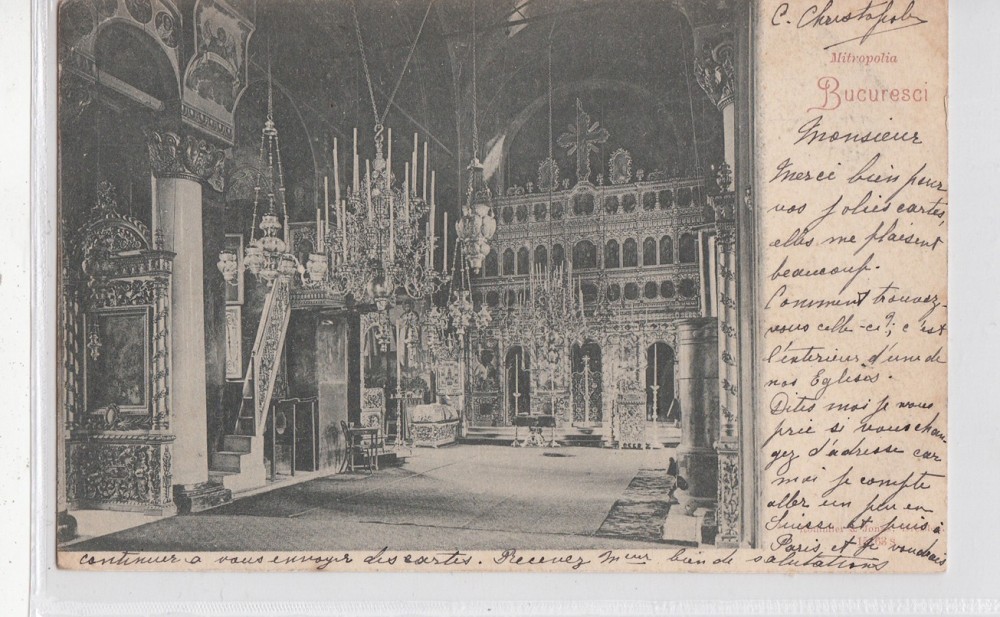 C. Christopol
Mitropolia
Bucuresci
Monsieur
Merci bien pour
vos jolies cartes,
elles me plaisent
beaucoup.
Comment trouvez-
vous celle-ci?; c'est
l'interieur d'une de
nos Eglises.
Dites moi je vous
prie si vous chan
gez d'adresse car
moi je compte
aller un peu en
Suisse et puis à
Paris, et je voudrais
continuer a vous envoyer des cartes. Recevez Mr bien de salutations